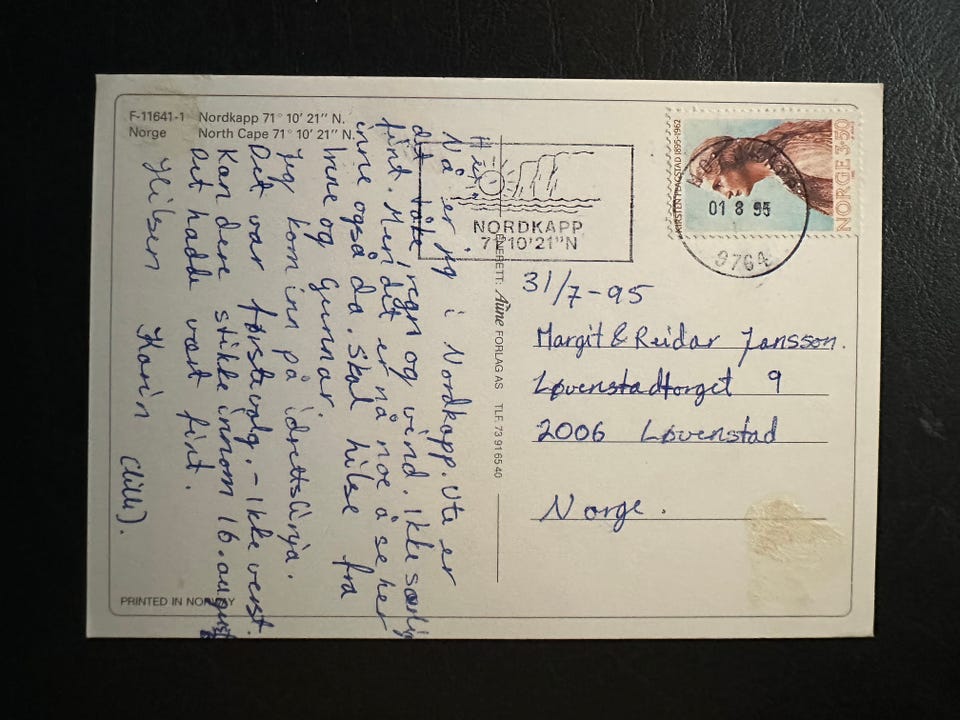 F-11641-1 Nordkapp 71° 10' 21'' N.
Norge North Cape 71° 10' 21'' N.
Hei!
Nå er jeg i Nordkapp. Ute er
det tåke, regn og vind. Ikke særlig
fint. Men det er nå noe å se her
inne også da. Skal hilse fra
Irene og Gunnar.
Jeg kom inn på idrettslinja.
Det var førstevalg. - Ikke verst.
Kan dere stikke innom 16. august
Det hadde vært fint.
Hilsen Karin (lill).
PRINTED IN NORWAY
NORDKAPP
71°10'21"N
ENERETT: Aune FORLAG AS TLF. 73 91 65 40
NORGE 5.50
KIRSTEN FLAGSTAD 1895-1962
01 8 95
9764
31/7-95
Margit & Reidar Jansson.
Løvenstadtorget 9
2006 Løvenstad
Norge.